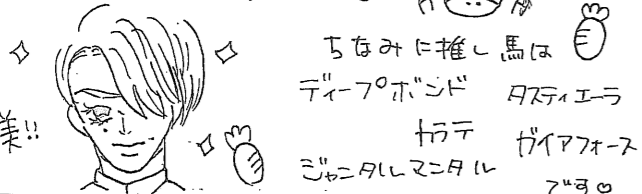 ちなみに推し馬は
ディープボンド タスティエーラ
カラテ ガイアフォース
ジャンタルマンタル
です♡
美!!